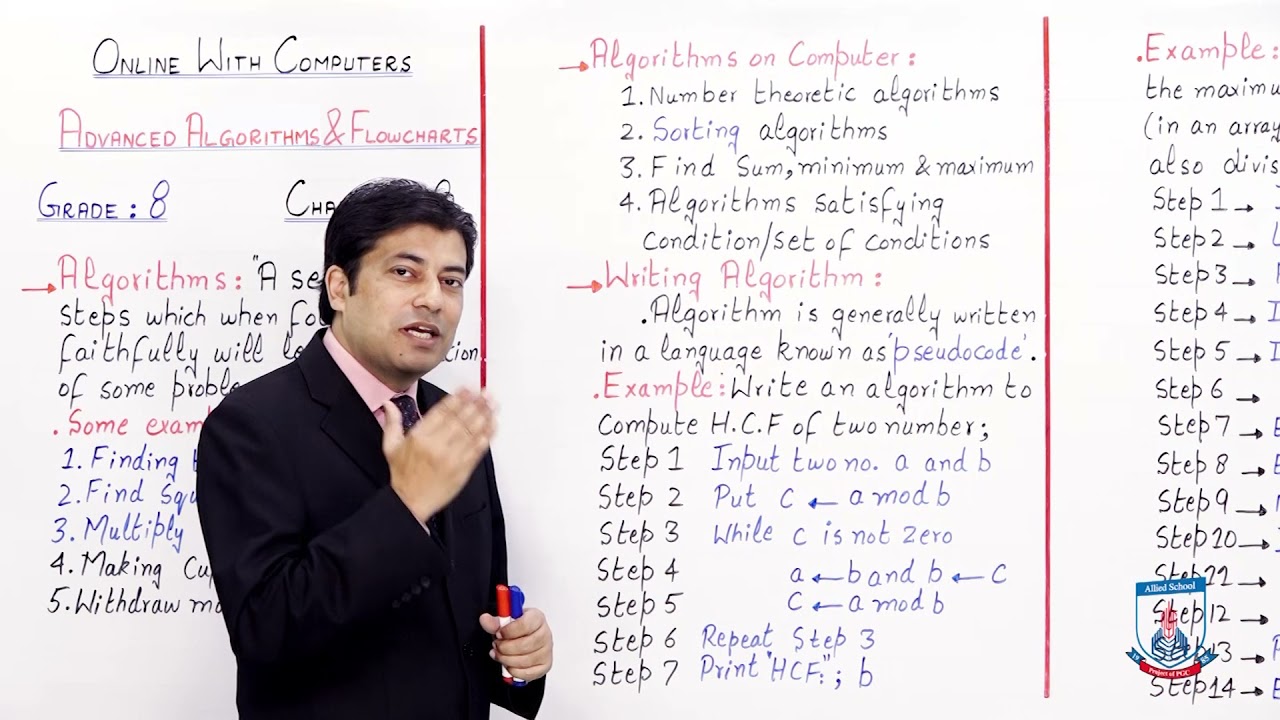 ONLINE WITH COMPUTERS
ADVANCED ALGORITHMS & FLOWCHARTS
GRADE: 8
Algorithms: "A
steps which when
faithfully will
of some
. Some
1. Finding
2. Find
3. Multiply
4. Making
5. Withdraw
Algorithms on Computer:
1. Number theoretic algorithms
2. Sorting algorithms
3. Find Sum, minimum & maximum
4. Algorithms satisfying
Condition/set of conditions
Writing Algorithm:
. Algorithm is generally written
in a language known as 'pseudocode'.
. Example: Write an algorithm to
Compute H.C.F of two number;
Step 1 Input two no. a and b
Step 2 Put C ← a mod b
Step 3 While C is not Zero
Step 4 a ← b and b ← C
Step 5 C ← a mod b
Step 6 Repeat Step 3
Step 7 Print "HCF:"; b
. Example:
the
(in an array
also
Step 1 →
Step 2 →
Step 3 →
Step 4 →
Step 5 →
Step 6 →
Step 7 →
Step 8 →
Step 9 →
Step 10 →
Step 11 →
Step 12 →
→
Step 14 →
Allied School
Project of PGC